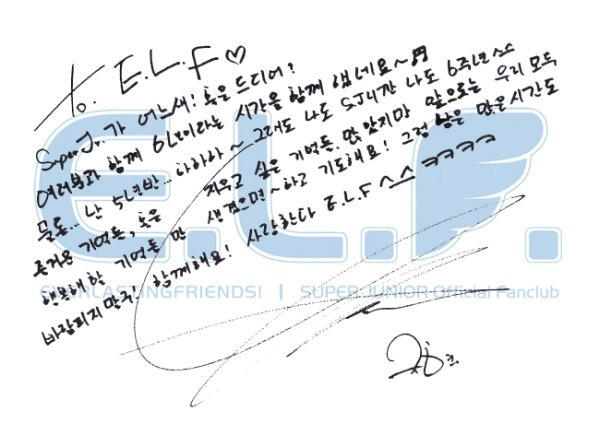 to. E.L.F ♡
Super Jr.가 어느새! 혹은 드디어!
여러분과 함께 6년이라는 시간을 함께 했네요~♬
물론... 난 5년반... 아하하~ 그래도 나도 SJ니깐 나도 6주년ㅅㅅ
즐거운 기억들, 혹은 지우고 싶은 기억들, 많았지만 앞으로는 우리 모두
행복해할 기억들만 생겼으면~하고 기도해요! 그럼 남은 많은시간도
바람피지말구! 함께해요! 사랑한다 E.L.F ^^ ㅋㅋㅋㅋ
E.L.F.
EVERLASTINGFRIENDS! | SUPER JUNIOR Official Fanclub